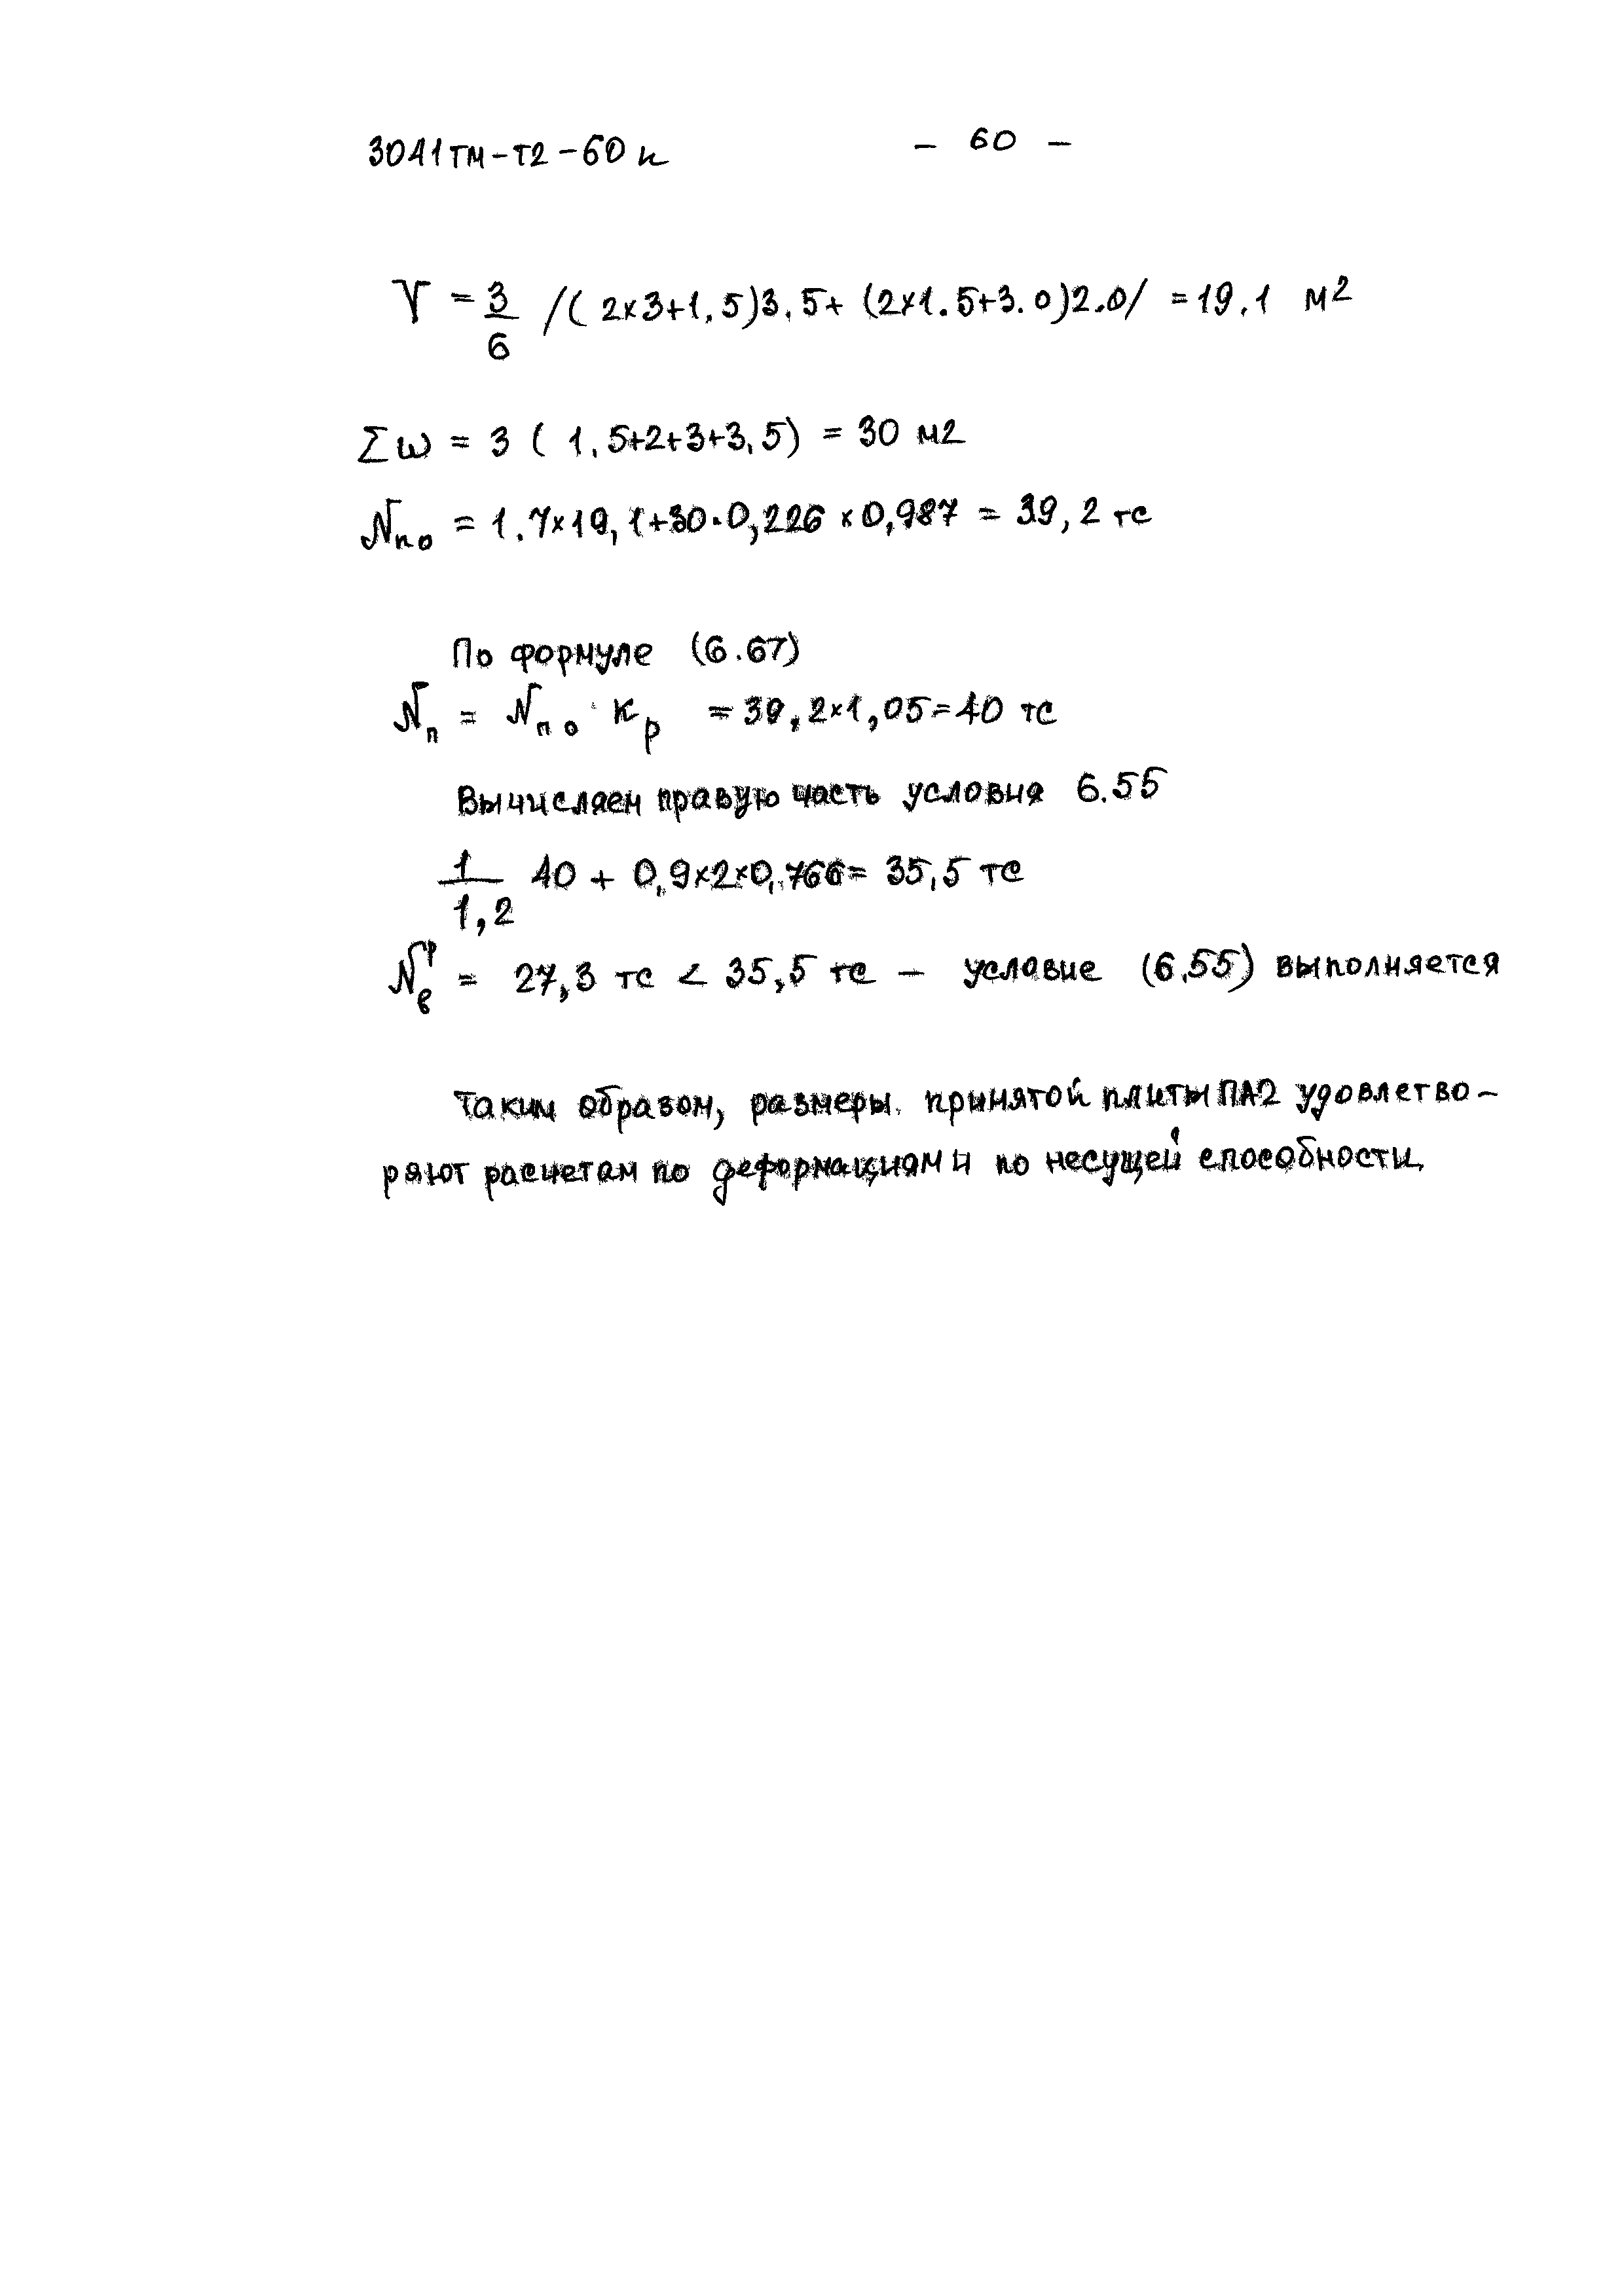 3041тм-т2-60 н - 60 -
V = 3/6 /( 2×3+1,5)3,5+ (2×1.5+3.0)2.0/ =19,1 м2
Σω = 3 ( 1,5+2+3+3,5) = 30 м2
Nпо = 1.7×19,1+30·0,226×0,987 = 39,2 тс
По формуле (6.67)
Nп = Nпо · Кр = 39,2×1,05=40 тс
Вычисляем правую часть условия 6.55
1/1,2 40 + 0,9×2×0,766= 35,5 тс
Nвр = 27,3 тс < 35,5 тс - условие (6.55) выполняется
Таким образом, размеры. принятой плиты ПА2 удовлетво-
ряют расчетам по деформациям и по несущей способности.